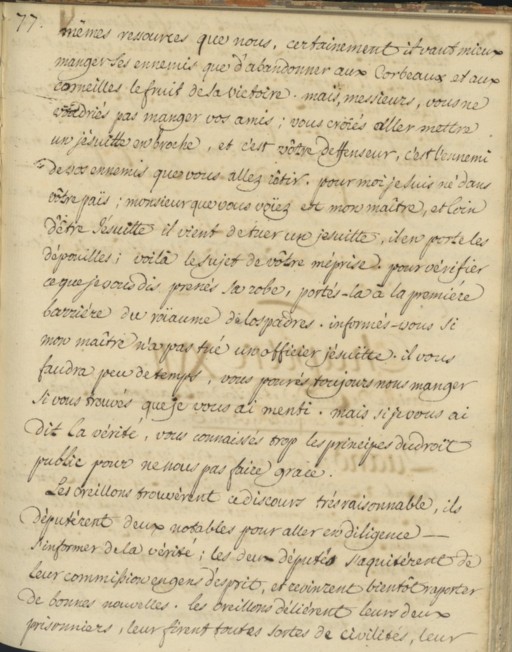 77.
mêmes ressources que nous, certainement il vaut mieux
manger ses ennemis que d'abandonner aux Corbeaux et aux
corneilles le fruit de sa victoire. mais, messieurs, vous ne
voudriés pas manger vos amis; vous croiés aller mettre
un jésuitte en broche, et c'est vôtre deffenseur, c'est l'ennemi
de vos ennemis que vous allez rôtir. pour moi je suis né dans
vôtre païs; monsieur que vous voiez est mon maître, et loin
d'être Jesuitte il vient de tuer un jesuitte, il en porte les
dépouilles; voilà le sujet de vôtre méprise. pour vérifier
ce que je vous dis prenés sa robe, portés-la à la premiére
barriére du roiaume de los padres. informés-vous si
mon maître n'a pas tué un officier jésuitte. il vous
faudra peu de temps, vous pourés toujours nous manger
si vous trouvés que je vous ai menti. mais si je vous ai
dit la vérité, vous connaissés trop les principes du droit
public pour ne nous pas faire grace.
Les oreillons trouvèrent ce discours très raisonnable, ils
députèrent deux notables pour aller en diligence
s'informer de la vérité; les deux députés s'aquitèrent de
leur commission en gens d'esprit, et revinrent bientôt raporter
de bonnes nouvelles. les oreillons déliérent leurs deux
prisonniers, leur firent toutes sortes de civilités, leur